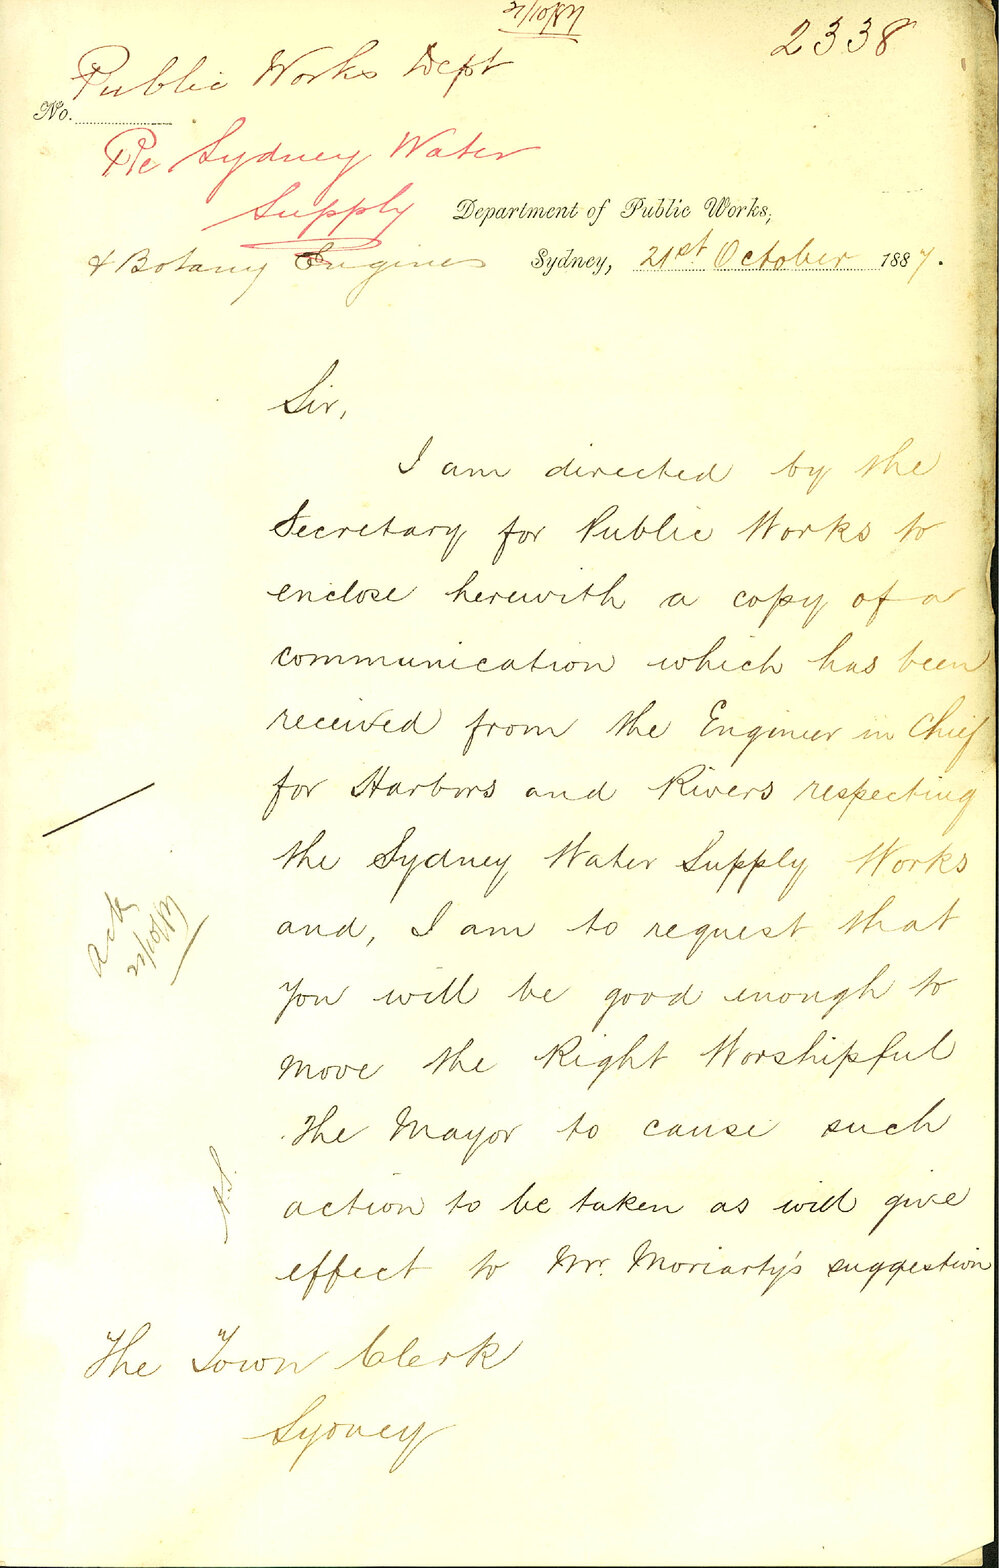 21/10/87
2338
Public Works Dept
No.
Re Sydney Water
Supply
Department of Public Works,
& Botany Engines
Sydney, 21st October 1887.
Sir,
I am directed by the
Secretary for Public Works to
enclose herewith a copy of a
communication which has been
received from the Engineer in Chief
for Harbors and Rivers respecting
the Sydney Water Supply Works
and, I am to request that
you will be good enough to
move the Right Worshipful
The Mayor to cause such
action to be taken as will give
effect to Mr. Moriarty's suggestion
ack
21/10/87
The Town Clerk
Sydney